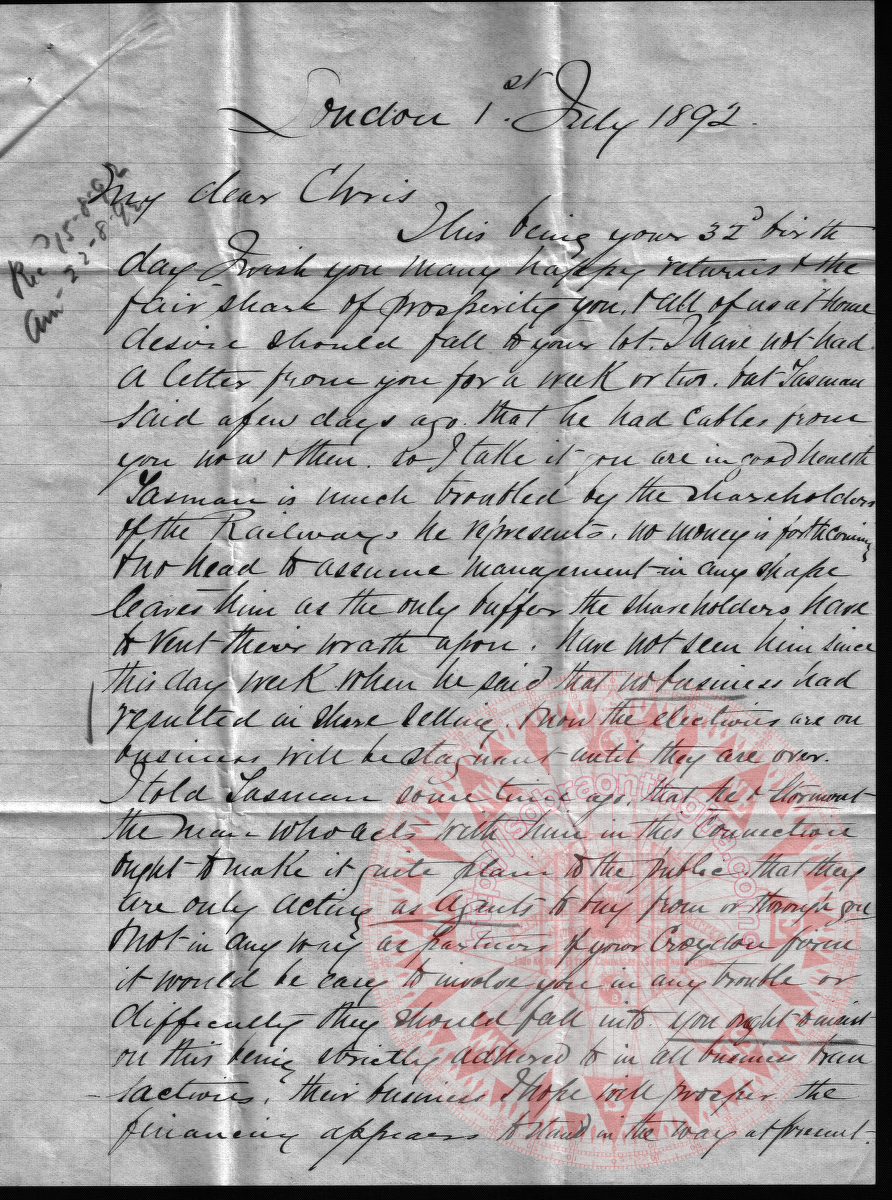 London 1st July 1892.
My dear Chris
Recd 15-8-92
Ans 22-8-92
This being your 32d birth
day I wish you many happy returns & the
fair share of prosperity you, & all of us at home
desire should fall to your lot. I have not had
a letter from you for a week or two. but Tasman
said a few days ago. that he had cables from
you now & then. so I take it you are in good health
Tasman is much troubled by the shareholders
of the Railways he represents, no money is forthcoming
& no head to assume management in any shape
leaves him as the only buffer the shareholders have
to vent their wrath upon. have not seen him since
this day week when he said that no business had
resulted in share selling. & now the elections are on
business will be stagnant until they are over.
I told Tasman some time ago. that he &
the man who acts with him in this connection
ought to make it quite plain to the public that they
are only acting as agents to buy from or through you
& not in any way as partners of your Croydon firm
it would be easy to involve you in any trouble or
difficulty they should fall into. you ought to insist
on this being strictly adhered to in all business tran
-sactions. their business I hope will prosper. the
financing appears to stand in the way at present.